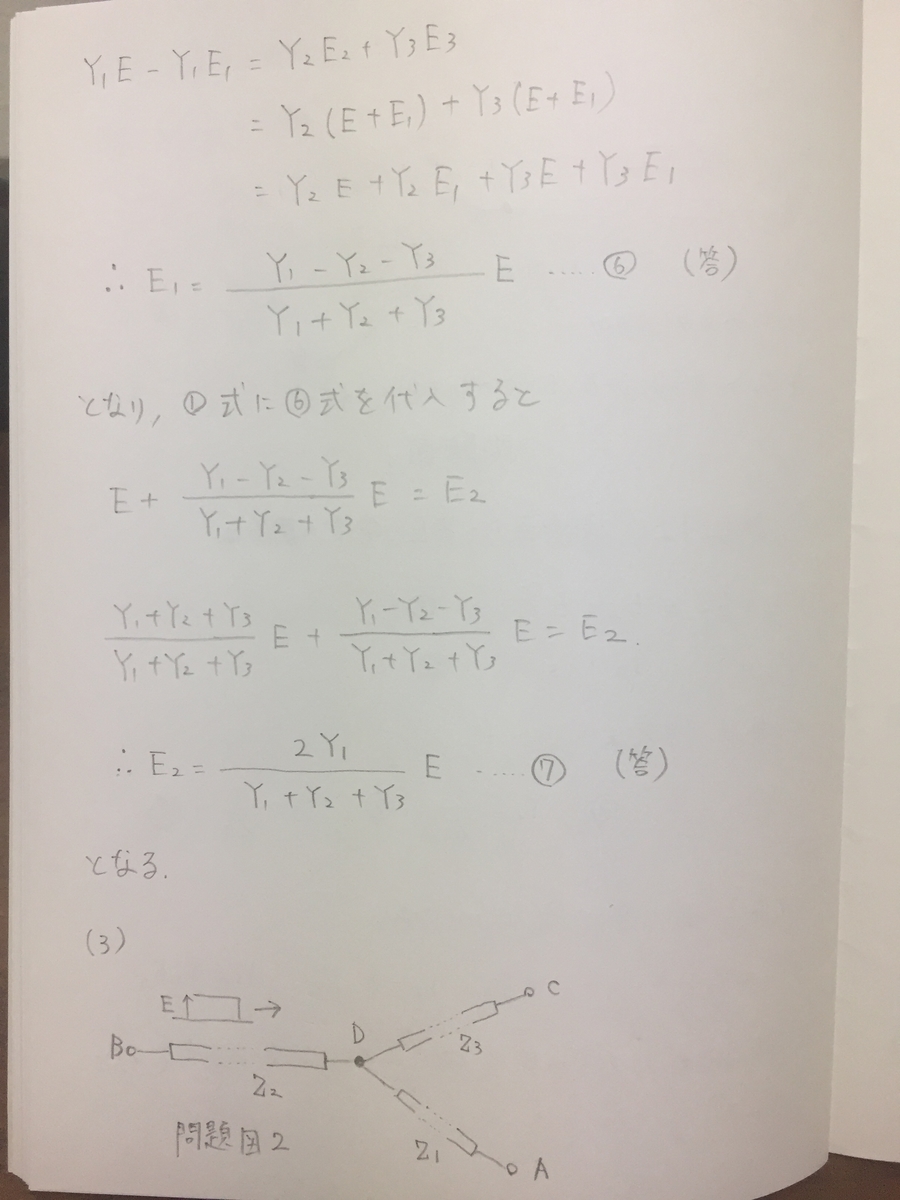 Y₁E - Y₁E₁ = Y₂E₂ + Y₃E₃
= Y₂(E+E₁) + Y₃(E+E₁)
= Y₂E + Y₂E₁ + Y₃E + Y₃E₁
∴ E₁ = (Y₁ - Y₂ - Y₃)/(Y₁ + Y₂ + Y₃) E ..... ⑥ (答)
となり, ①式に⑥式を代入すると
E + (Y₁ - Y₂ - Y₃)/(Y₁ + Y₂ + Y₃) E = E₂
(Y₁ + Y₂ + Y₃)/(Y₁ + Y₂ + Y₃) E + (Y₁ - Y₂ - Y₃)/(Y₁ + Y₂ + Y₃) E = E₂.
∴ E₂ = 2Y₁/(Y₁ + Y₂ + Y₃) E ..... ⑦ (答)
となる.
(3)
E
C
D
Z₃
B
Z₂
問題図2
Z₁
A